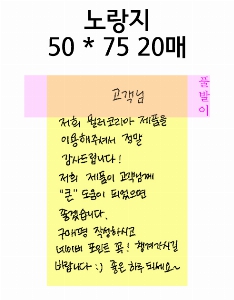 노랑지
50 * 75 20매
고객님
풀발이
저희 컬러코리아 제품을
이용해주셔서 정말
감사드립니다!
저희 제품이 고객님께
"큰" 도움이 되었으면
좋겠습니다.
구매평 작성하시고
네이버 포인트 꼭! 챙겨가시길
바랍니다 :) 좋은 하루 되세요~